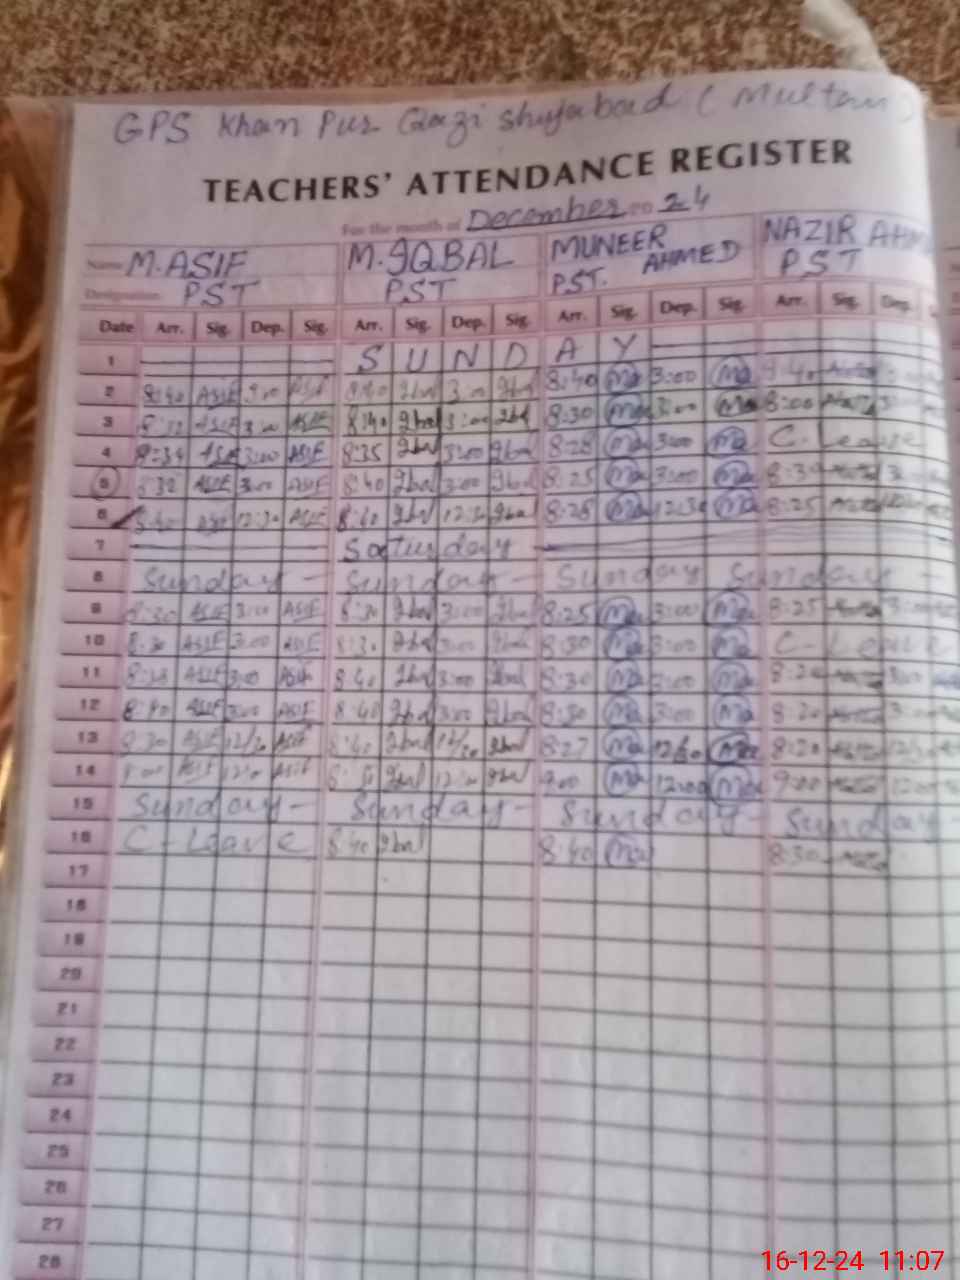 GPS Khan Pur Qazi Shujabad (Multan)
TEACHERS' ATTENDANCE REGISTER
For the month of December 20 24
Name M.ASIF M.IQBAL MUNEER AHMED NAZIR AHM
Designation PST PST PST. PST
Date Arr. Sig. Dep. Sig. Arr. Sig. Dep. Sig. Arr. Sig. Dep. Sig. Arr. Sig. Dep.
1 SUNDAY
2 8:40 ASIF 3:00 ASIF 8:40 Iqbal 3:00 Iqbal 8:40 Ma 3:00 Ma
3 ASIF 3:00 ASIF 8:40 Iqbal 3:00 Iqbal 8:30 Ma 3:00 Ma 8:00
4 8:34 ASIF 3:00 ASIF 8:35 Iqbal 3:00 Iqbal 8:28 Ma 3:00 Ma C. Leave
5 8:30 ASIF 3:00 ASIF 8:40 Iqbal 3:00 Iqbal 8:25 Ma 3:00 Ma 8:30
6 8:40 ASIF 12:30 ASIF 8:40 Iqbal 12:30 Iqbal 8:28 Ma 12:30 Ma 8:25
7 Saturday
8 Sunday - Sunday - Sunday Sunday -
9 8:30 ASIF 3:00 ASIF 8:30 Iqbal 3:00 Iqbal 8:25 Ma 3:00 Ma 8:25
10 8:30 ASIF 3:00 ASIF 8:30 Iqbal 3:00 Iqbal 8:30 Ma 3:00 Ma C-Leave
11 ASIF 3:00 ASIF 8:40 Iqbal 3:00 Iqbal 8:30 Ma 3:00 Ma 8:20 3:00
12 8:40 ASIF 3:00 ASIF 8:40 Iqbal 3:00 Iqbal 8:30 Ma 3:00 Ma 8:20 3:00
13 8:30 ASIF 12/30 ASIF 8:40 Iqbal Iqbal 8:27 Ma 12/30 Ma 8:20
14 ASIF ASIF Iqbal Iqbal 9:00 Ma 12:00 Ma 9:00 12:00
15 Sunday - Sunday - Sunday - Sunday -
16 C-Leave 8:40 Iqbal 8:40 Ma 8:30
17
18
19
20
21
22
23
24
25
26
27
28
16-12-24 11:07